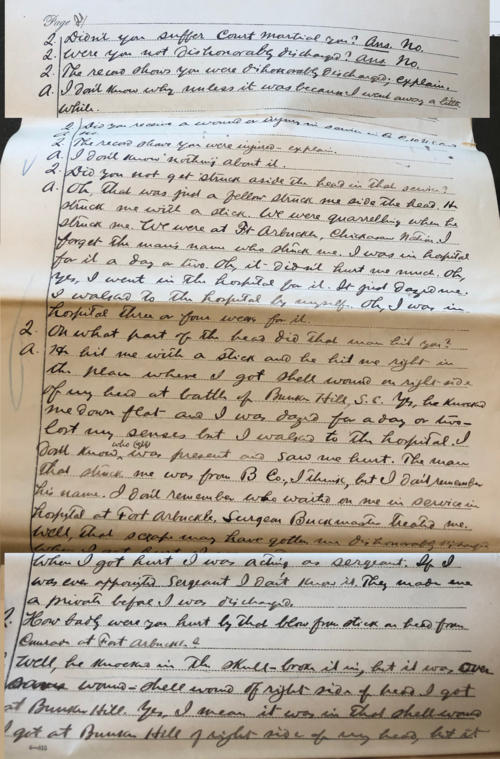 Page
Q. Didn't you suffer Court Martial you? Ans. No.
Q. Were you not dishonorably discharged? Ans. No.
Q. The record shows you were dishonorably discharged, explain.
A. I don't know why unless it was because I went away a little
while.
Q. Did you receive a wound or injury in service in
Q. The record shows you were injured - explain.
A. I don't know nothing about it.
Q. Did you not get struck aside the head in that service?
A. Oh, that was just a fellow struck me side the head. He
struck me with a stick. We were quarrelling when he
struck me. We were at Ft Arbuckle, Chickasaw Nation. I
forget the man's name who struck me. I was in hospital
for it a day or two. Oh, it didn't hurt me much. Oh,
yes, I went in the hospital for it. It just dazed me.
I walked to the hospital by myself. Oh, I was in
hospital three or four weeks for it.
Q. On what part of the head did that man hit you?
A. He hit me with a stick and he hit me right in
the place where I got shell wound on right side
of my head at battle of Bunker Hill, S.C. Yes, he knocked
me down flat and I was dazed for a day or two -
lost my senses but I walked to the hospital. I
don't know who was present and saw me hurt. The man
that struck me was from B Co., I think, but I don't remember
his name. I don't remember who waited on me in service in
hospital at Fort Arbuckle. Surgeon Buckmaster treated me.
Well, that scrape may have gotten me dishonorably discharge
When I got hurt I
When I got hurt I was acting as sergeant. If I
was ever appointed Sergeant I don't know it. They made me
a private before I was discharged.
Q. How badly were you hurt by that blow from stick on head from
Comrade at Fort Arbuckle?
Well, he knocked in the skull - broke it in, but it was over
same wound - shell wound of right side of head I got
at Bunker Hill. Yes, I mean it was in that shell wound
I got at Bunker Hill of right side of my head, but it